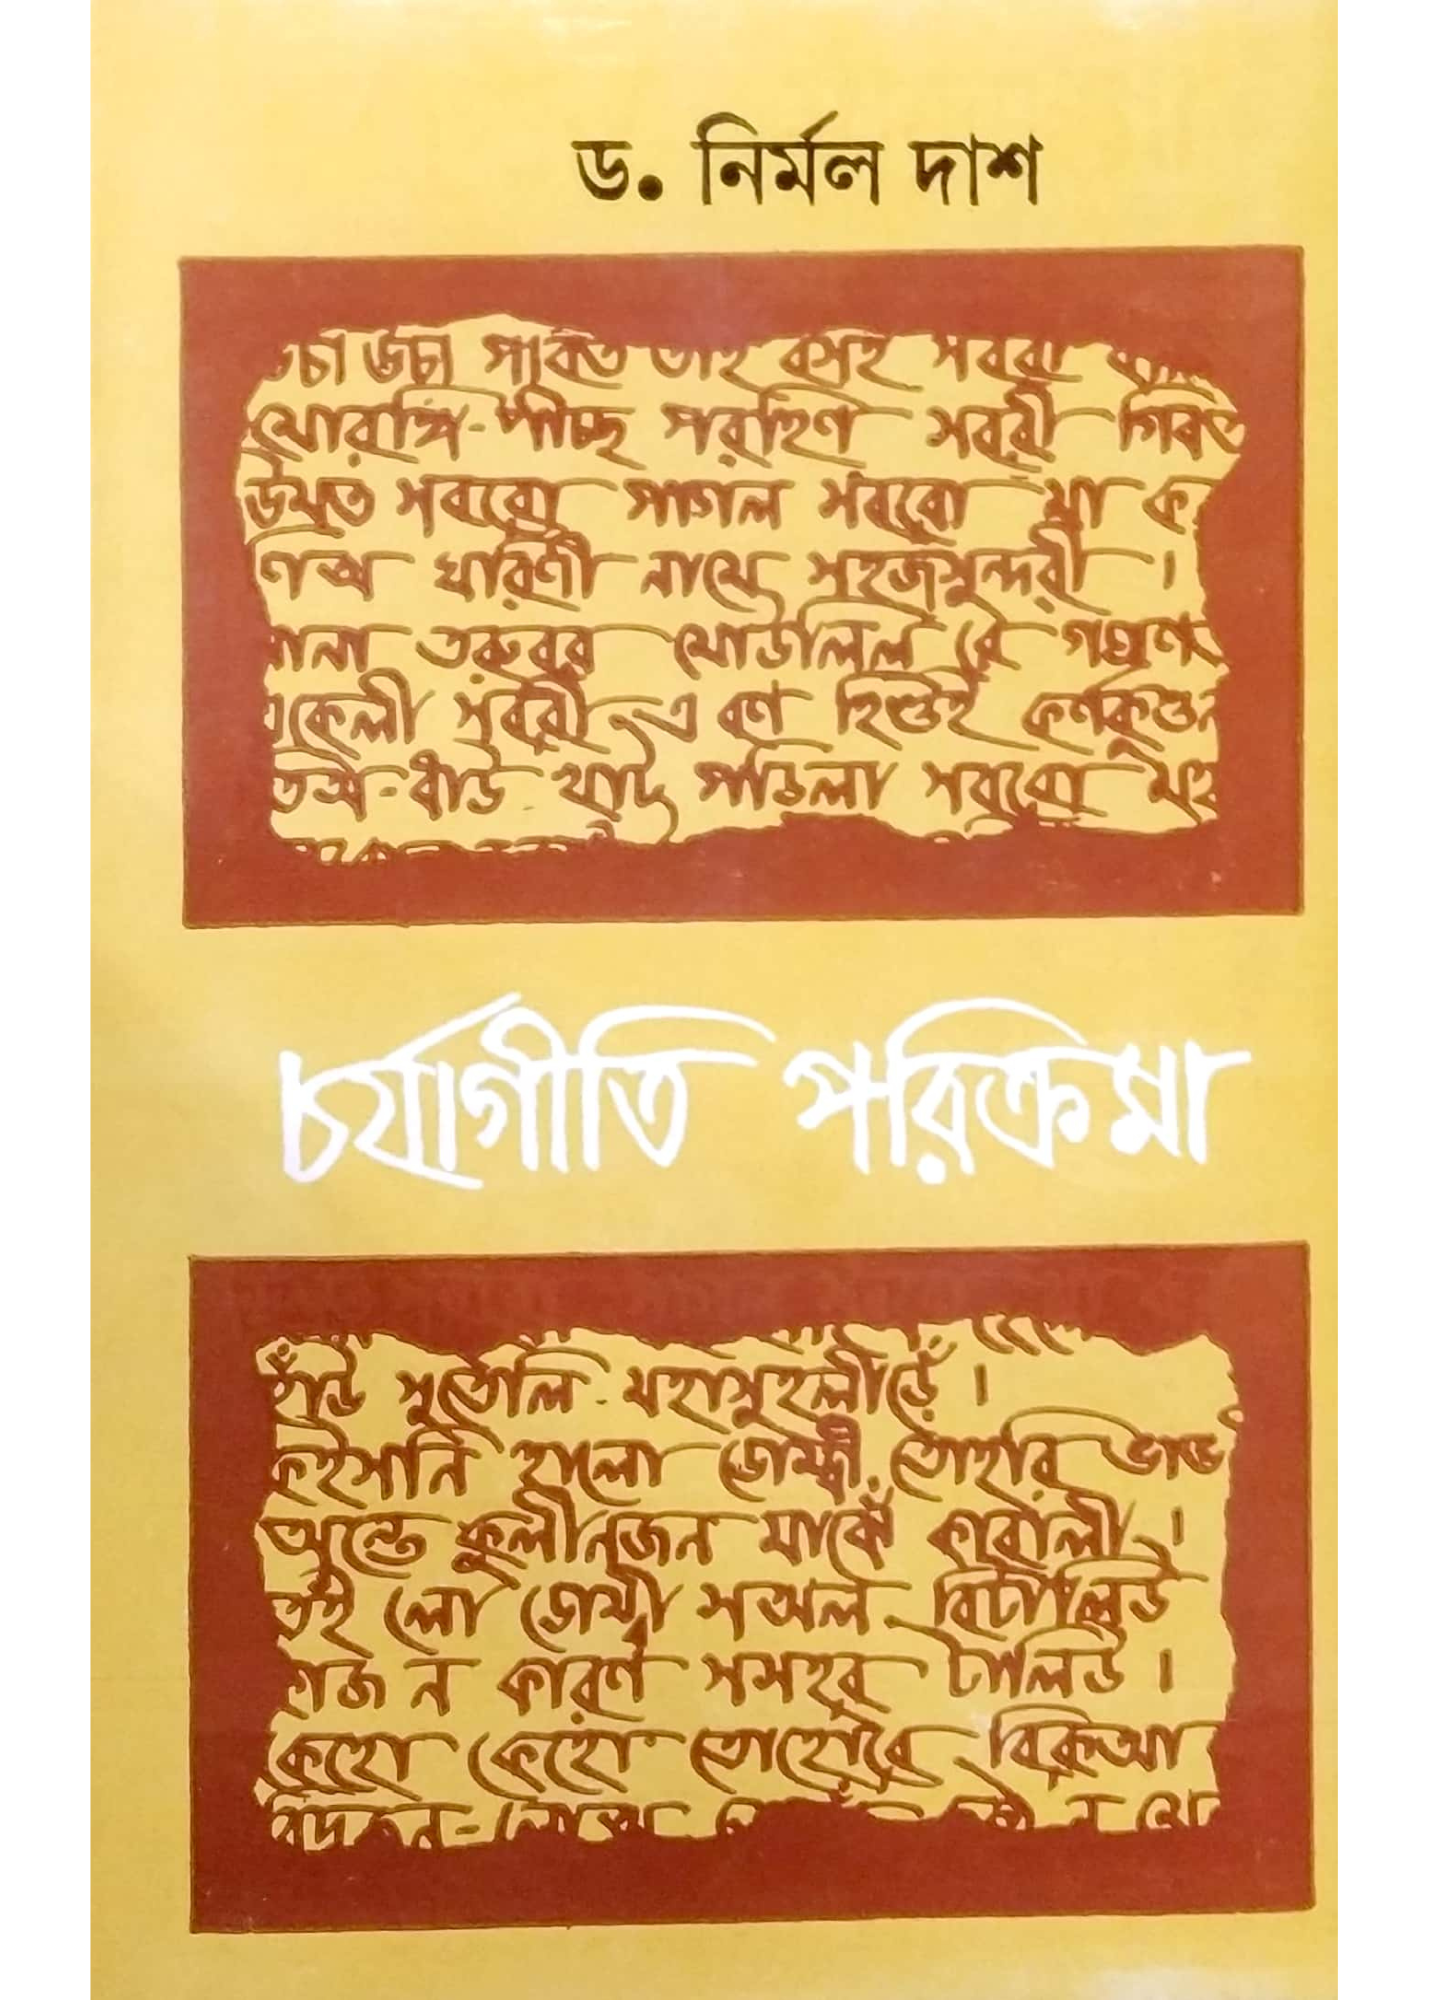 ড. নির্মল দাশ
উচা পাবত তাহি বসই সবরী
মোরঙ্গি-পীচ্ছ পরহিণ সবরী গিবত
উমত সবরো পাগল সবরো মা
ণিঅ ঘরিণী নামে সহজসুন্দরী ।
তরুবর মোউলিল রে গঅণত
একেলী সবরী এ বণ হিণ্ডই কর্ণকুণ্ডল
তিঅ-ধাউ খাট পড়িলা সবরো মহা
চর্যাগীতি পরিক্রমা
হাঁউ সুতেলি মহাসুহলীড়েঁ ।
কইসনি হালো ডোম্বী তোহরি ভাভ
অন্তে কুলীনজন মাঝেঁ কাবালী ।
তঁই লো ডোম্বী সঅল বিটালিউ
কাজ ন কারণ সসহর টালিউ ।
কেহো কেহো তোহোরে বিরুআ